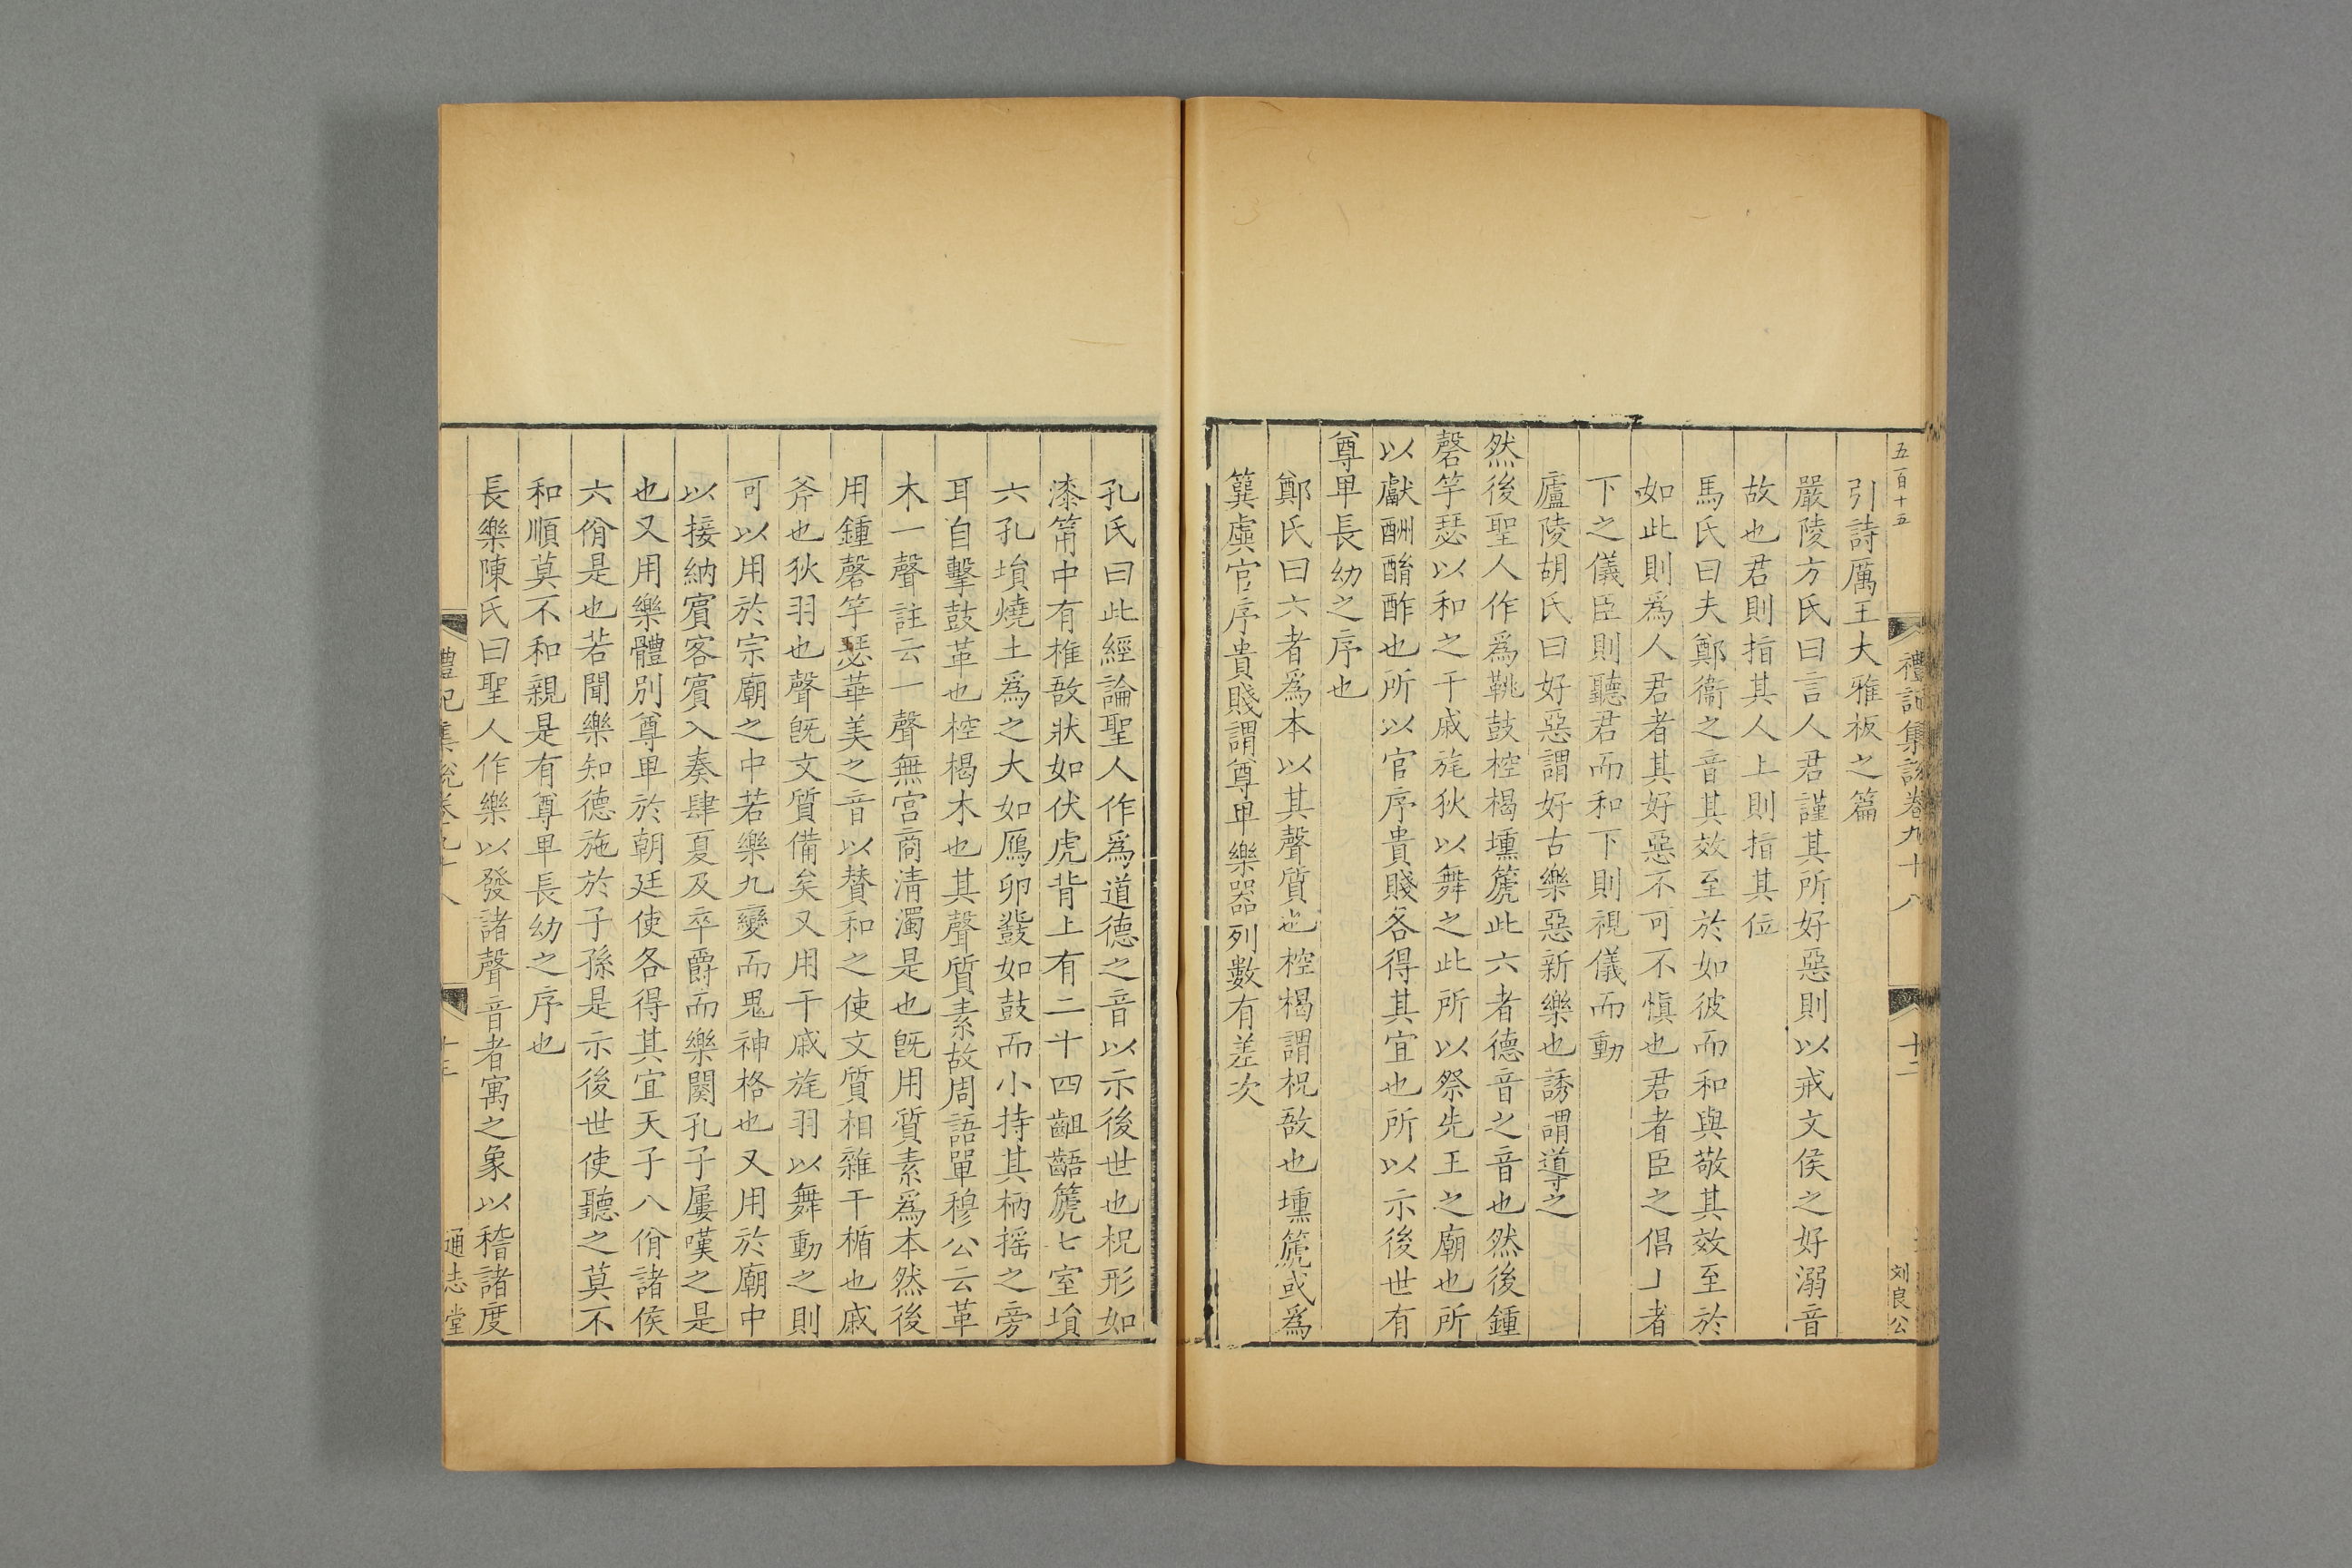 五百十五
禮記集說卷九十八
十二
刘良公
引詩厲王大雅板之篇
嚴陵方氏曰言人君謹其所好惡則以戒文侯之好溺音
故也君則指其人上則指其位
馬氏曰夫鄭衞之音其效至於如彼而和與敬其效至於
如此則爲人君者其好惡不可不愼也君者臣之倡上者
下之儀臣則聽君而和下則視儀而動
廬陵胡氏曰好惡謂好古樂惡新樂也誘謂導之
然後聖人作爲鞉鼓椌楬壎篪此六者德音之音也然後鍾
磬竽瑟以和之干戚旄狄以舞之此所以祭先王之廟也所
以獻酬酳酢也所以官序貴賤各得其宜也所以示後世有
尊卑長幼之序也
鄭氏曰六者爲本以其聲質也椌楬謂柷敔也壎篪或爲
簨虡官序貴賤謂尊卑樂器列數有差次
孔氏曰此經論聖人作爲道德之音以示後世也柷形如
漆筩中有椎敔狀如伏虎背上有二十四齟齬篪七室塤
六孔塤燒土爲之大如鴈卵鼗如鼓而小持其柄搖之旁
耳自擊鼓革也椌楬木也其聲質素故周語單穆公云革
木一聲註云一聲無宮商淸濁是也旣用質素爲本然後
用鍾磬竽瑟華美之音以賛和之使文質相雜干楯也戚
斧也狄羽也聲旣文質備矣又用干戚旄羽以舞動之則
可以用於宗廟之中若樂九變而鬼神格也又用於廟中
以接納賓客賓入奏肆夏及卒爵而樂闋孔子屢嘆之是
也又用樂體別尊卑於朝廷使各得其宜天子八佾諸侯
六佾是也若聞樂知德施於子孫是示後世使聽之莫不
和順莫不和親是有尊卑長幼之序也
長樂陳氏曰聖人作樂以發諸聲音者寓之象以稽諸度
禮記集說卷九十八
十三
通志堂